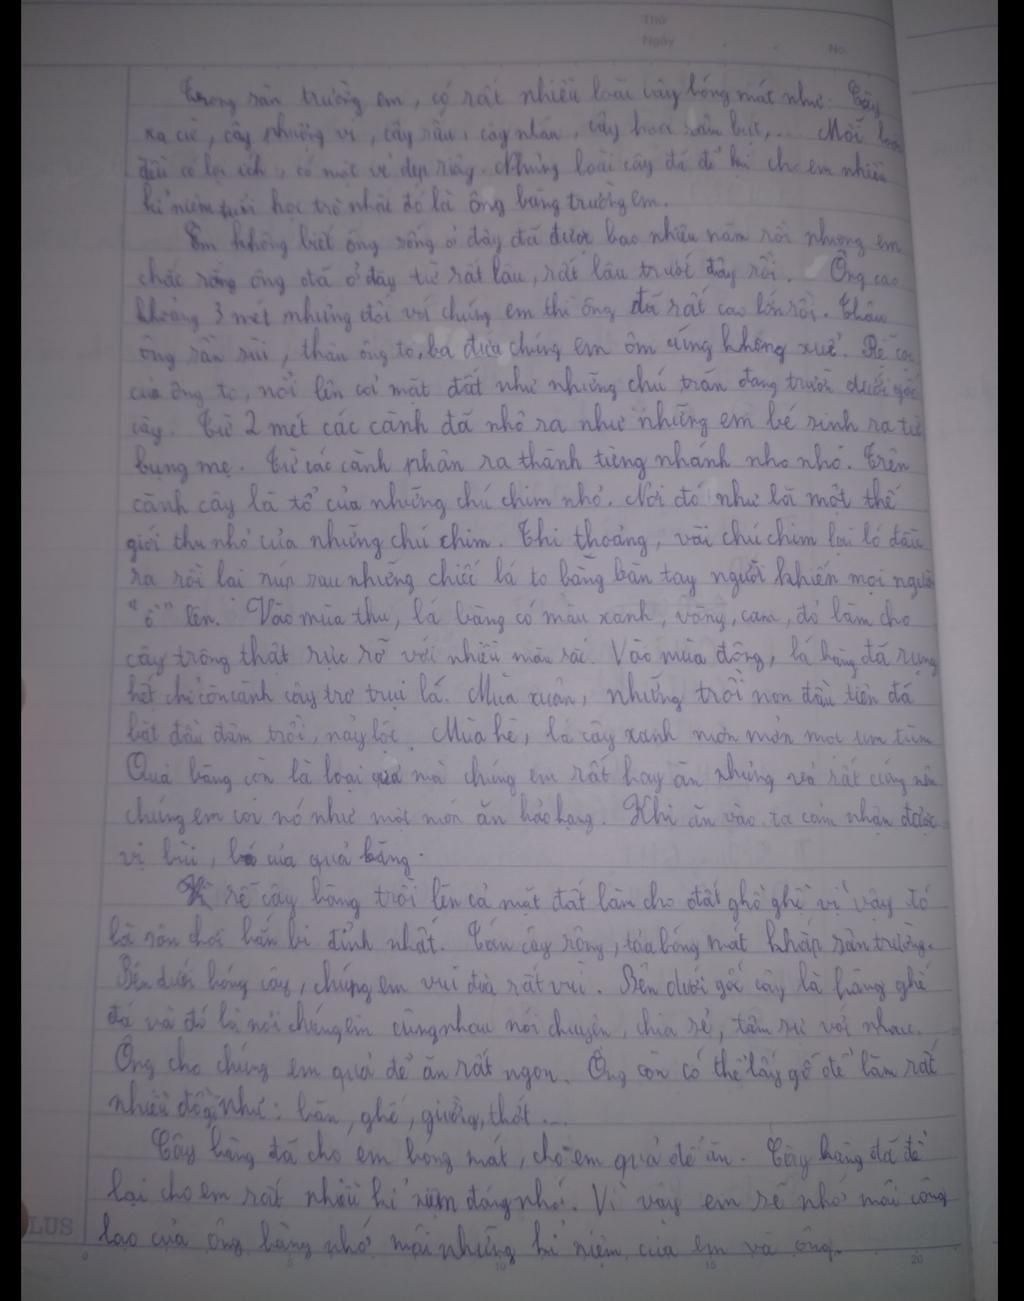 Thứ
Ngày
No.
Trong sân trường em, có rất nhiều loài cây bóng mát như: Cây
xà cừ, cây phượng vĩ, cây sấu, cây nhãn, cây hoa râm bụt,... Mỗi loài
đều có lợi ích, có một vẻ đẹp riêng. Nhưng loài cây đã để lại cho em nhiều
kỉ niệm tuổi học trò nhất đó là ông bàng trường em.
Em không biết ông sống ở đây đã được bao nhiêu năm rồi nhưng em
chắc rằng ông đã ở đây từ rất lâu, rất lâu trước đây rồi. Ông cao
khoảng 3 mét nhưng đối với chúng em thì ông đã rất cao lớn rồi. Thân
ông sần sùi, thân ông to, ba đứa chúng em ôm cũng không xuể. Rễ cây
của ông to, nổi lên cả mặt đất như những chú trăn đang trườn dưới gốc
cây. Từ 2 mét các cành đã nhô ra như những em bé sinh ra từ
bụng mẹ. Từ các cành phân ra thành từng nhánh nho nhỏ. Trên
cành cây là tổ của những chú chim nhỏ. Nơi đó như là một thế
giới thu nhỏ của những chú chim. Thi thoảng, vài chú chim lại ló đầu
ra rồi lại núp sau những chiếc lá to bằng bàn tay người khiến mọi người
"ồ" lên. Vào mùa thu, lá bàng có màu xanh, vàng, cam, đỏ làm cho
cây trông thật rực rỡ với nhiều màu sắc. Vào mùa đông, lá bàng đã rụng
hết chỉ còn cành cây trơ trụi lá. Mùa xuân, những trồi non đầu tiên đã
bắt đầu đâm trồi, nảy lộc. Mùa hè, lá cây xanh mơn mởn mọc um tùm
Quả bàng còn là loại quả mà chúng em rất hay ăn nhưng vỏ rất cứng nên
chúng em coi nó như một món ăn hảo hạng. Khi ăn vào ta cảm nhận được
vị bùi, của quả bàng.
Vì rễ cây bàng trồi lên cả mặt đất làm cho đất ghồ ghề vì vậy đó
là sân chơi bắn bi đỉnh nhất. Tán cây rộng, tỏa bóng mát khắp sân trường.
Bên dưới bóng cây, chúng em vui đùa rất vui. Bên dưới gốc cây là hàng ghế
đá và đó là nơi chúng em cùng nhau nói chuyện, chia sẻ, tâm sự với nhau.
Ông cho chúng em quả để ăn rất ngon. Ông còn có thể lấy gỗ để làm rất
nhiều đồ gỗ như: bàn, ghế, giường, thớt...
Cây bàng đã cho em bóng mát, cho em quả để ăn. Cây bàng đã để
lại cho em rất nhiều kỉ niệm đáng nhớ. Vì vậy em sẽ nhớ mãi công
lao của ông bàng nhớ mãi những kỉ niệm của em và ông.
LUS
0 5 10 15 20